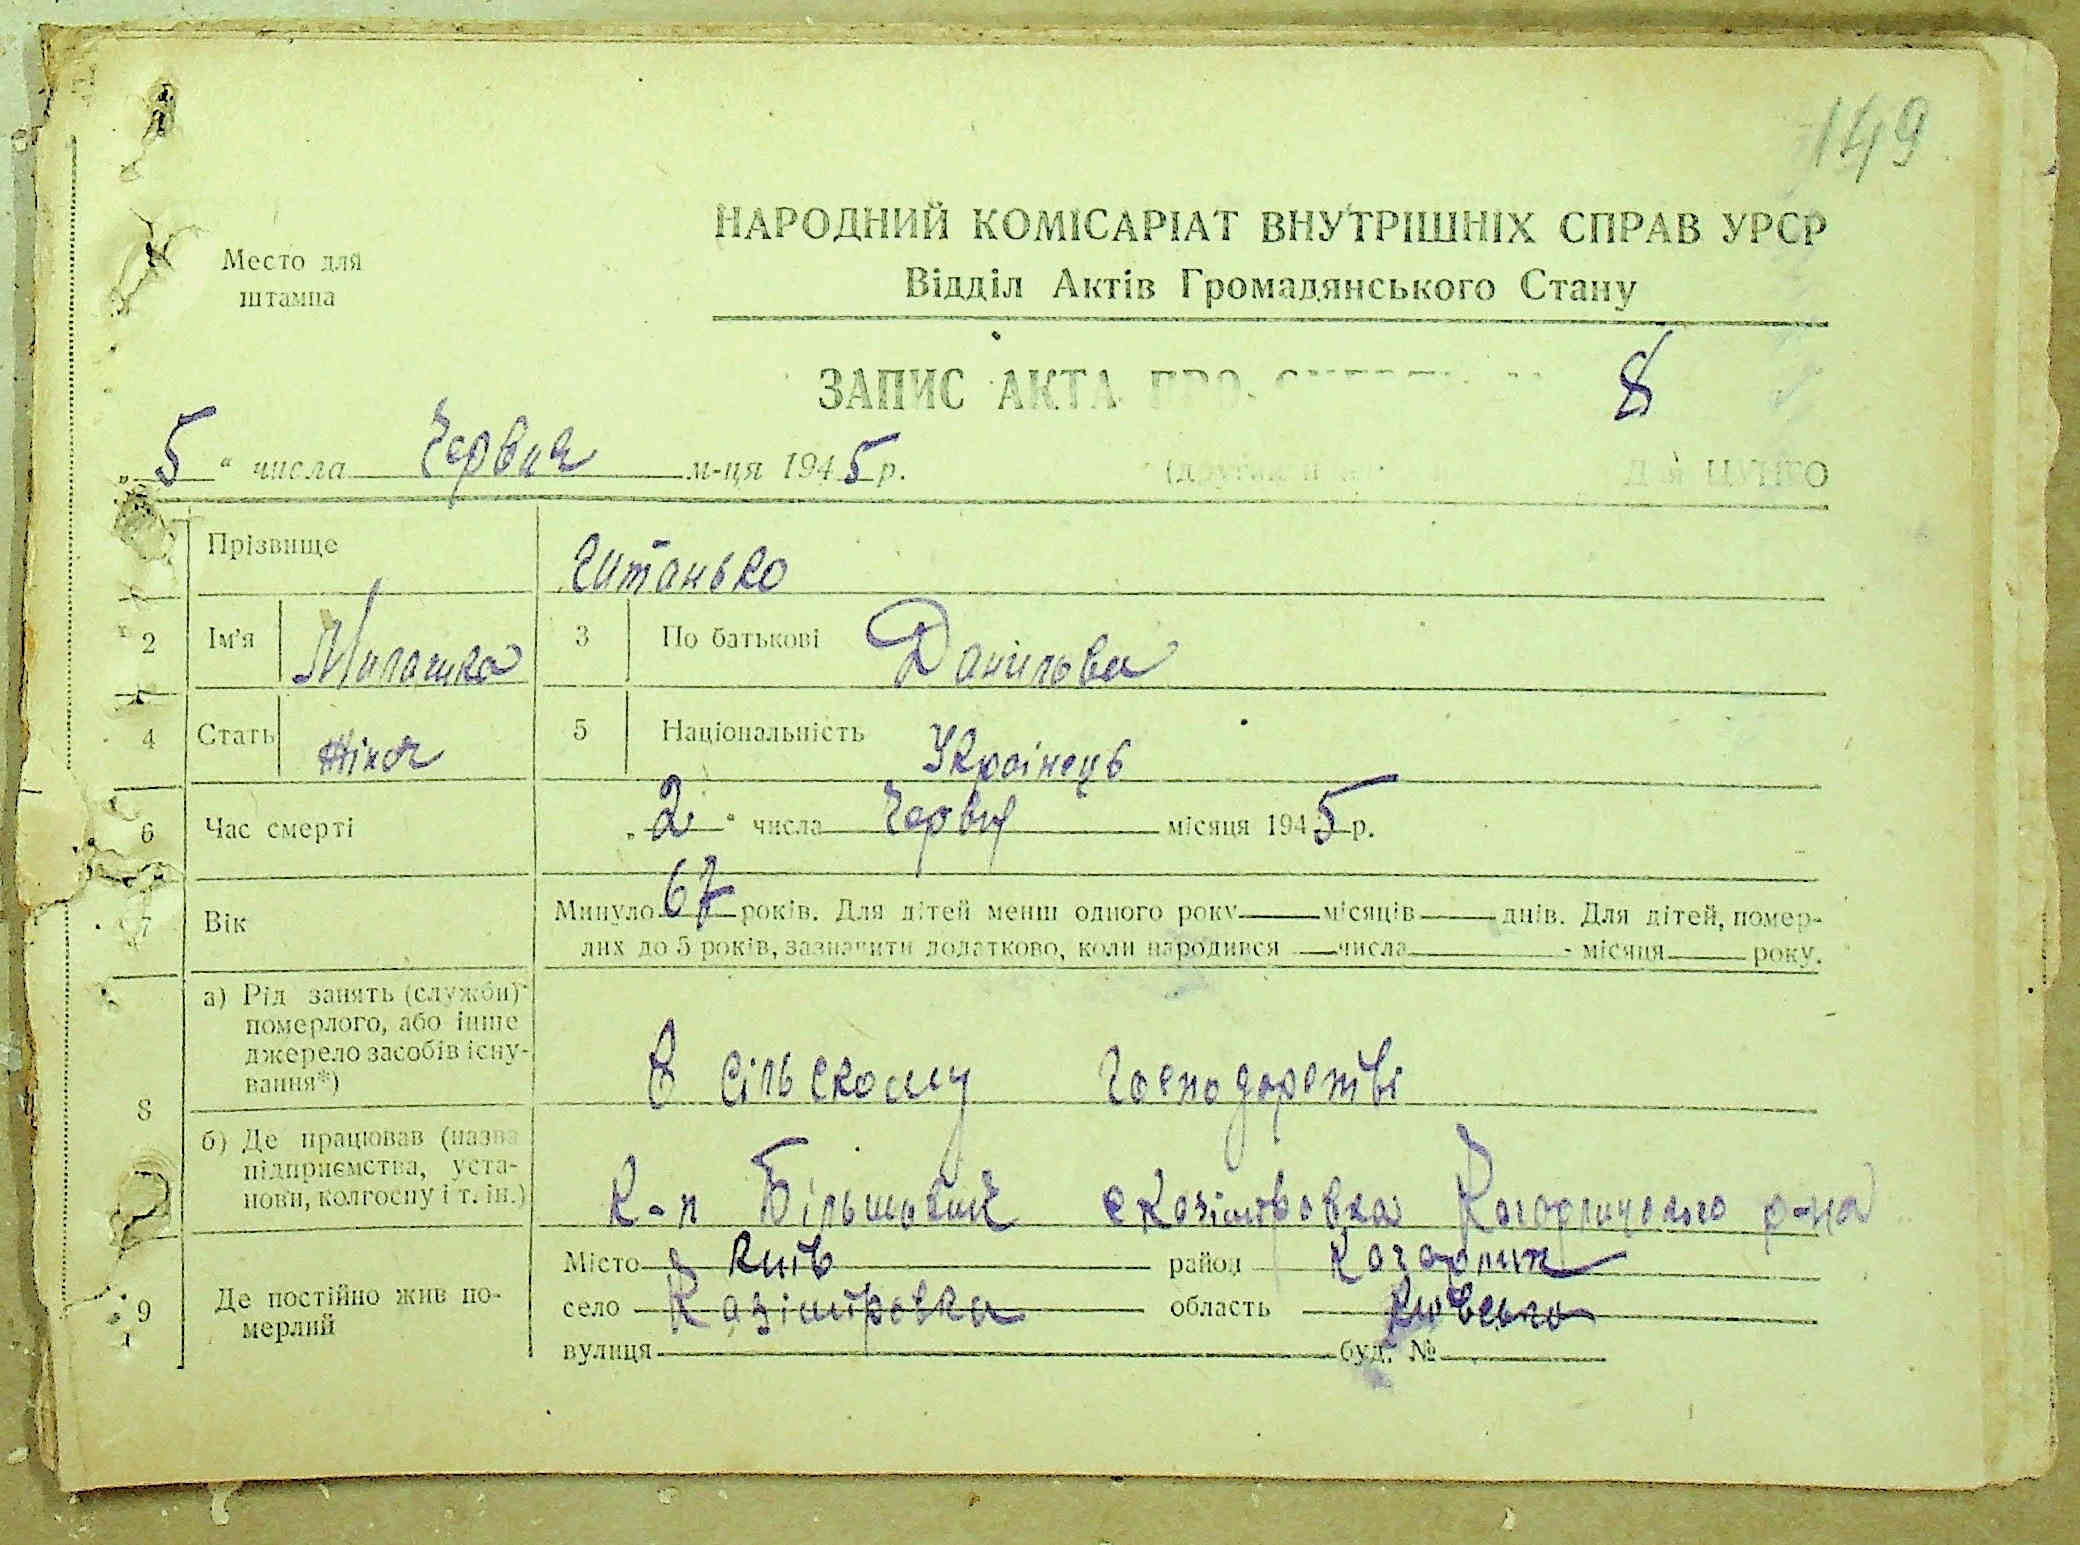 149
Место для
штампа
НАРОДНИЙ КОМІСАРІАТ ВНУТРІШНІХ СПРАВ УРСР
Відділ Актів Громадянського Стану
ЗАПИС АКТА ПРО 8
„5“ числа Червня м-ця 1945 р.
Для ЦУНГО
Прізвище Читанько
2 Ім'я Малашка 3 По батькові Данильва
4 Стать жіноч 5 Національність Українець
6 Час смерті „2“ числа Червня місяця 1945 р.
7 Вік Минуло 67 років. Для дітей менш одного року місяців днів. Для дітей, помер-
лих до 5 років, зазначити додатково, коли народився числа місяця року.
8 а) Рід занять (служби)
померлого, або інше
джерело засобів існу-
вання*)
В сільскому господарстві
б) Де працював (назва
підприємства, уста-
нови, колгоспу і т. ін.)
К-п Більшовик с Казімировка Кагарлицького р-на
9 Де постійно жив по-
мерлий
Місто Київ район Кагарлик
село Казімировка область Київсько
вулиця буд. №